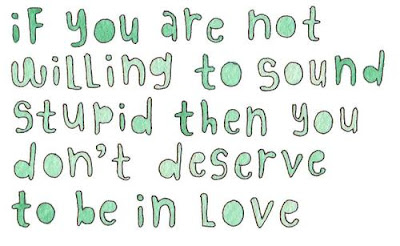 if you are not
willing to sound
stupid then you
don't deserve
to be in love